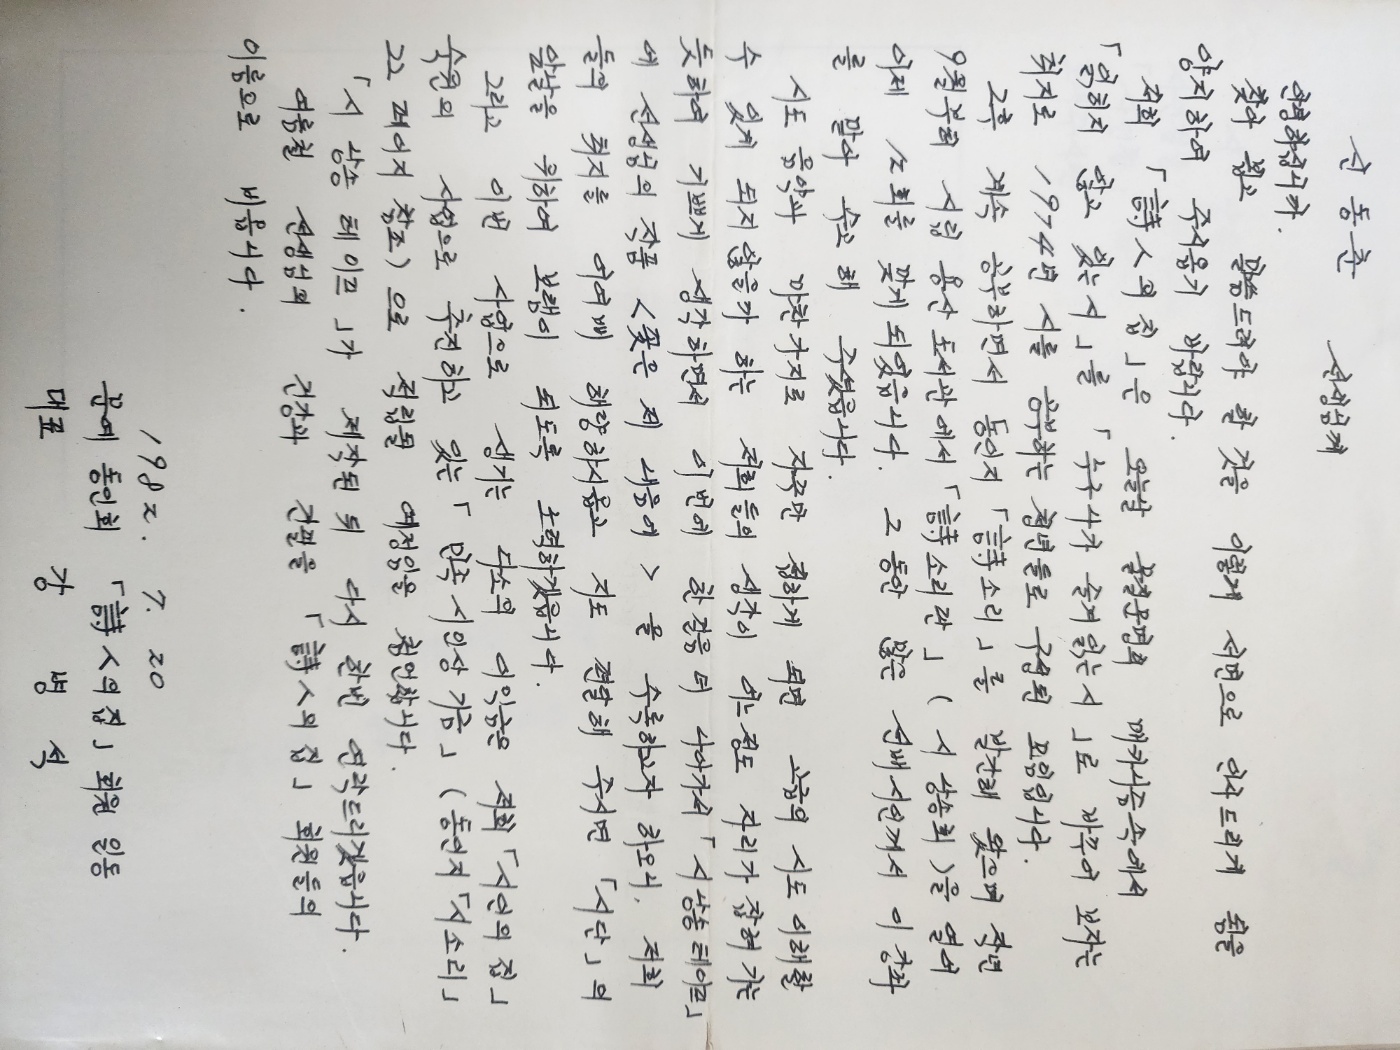 신동춘 선생님께
안녕하십니까.
찾아 뵙고 말씀드려야 할 것을 이렇게 서면으로 인사드리게 됨을
양지하여 주시옵기 바랍니다.
저희 「詩人의 집」은 오늘날 물질문명의 매카니즘속에서
「읽히지 않고 있는 시」를 「누구나가 즐겨 읽는 시」로 바꾸어 보자는
취지로 1974년 시를 공부하는 청년들로 구성된 모임입니다.
그후 계속 공부하면서 동인지 「詩소리」를 발간해 왔으며 작년
9월부터 시립 용산 도서관에서 「詩소리판」 (시 낭송회)을 열어
이제 12회를 맞게 되었읍니다. 그 동안 많은 선배시인께서 이 강좌
를 맡아 수고해 주셨읍니다.
시도 음악과 마찬가지로 자주만 접하게 되면 고급의 시도 이해할
수 있게 되지 않을가 하는 저희들의 생각이 어느정도 자리가 잡혀가는
듯하여 기쁘게 생각하면서 이번에 한걸음 더 나아가서 「시낭송테이프」
에 선생님의 작품 <꽃은 제 내음에> 을 수록하고자 하오니, 저희
들의 취지를 어여삐 해량하시옵고 지도 편달해 주시면 「시단」의
앞날을 위하여 보탬이 되도록 노력하겠읍니다.
그리고 이번 사업으로 생기는 다소의 이익금은 저희 「시인의 집」
숙원의 사업으로 추진하고 있는 「민족시인상 기금」 (동인지 「시소리」
22 페이지 참조)으로 적립될 예정임을 첨언합니다.
「시 낭송 테이프」가 제작된 뒤 다시 한번 연락드리겠읍니다.
여름철 선생님의 건강과 건필을 「詩人의 집」 회원들의
이름으로 비옵니다.
1982. 7. 20
문예 동인회 「詩人의집」 회원 일동
대표 강 병 석